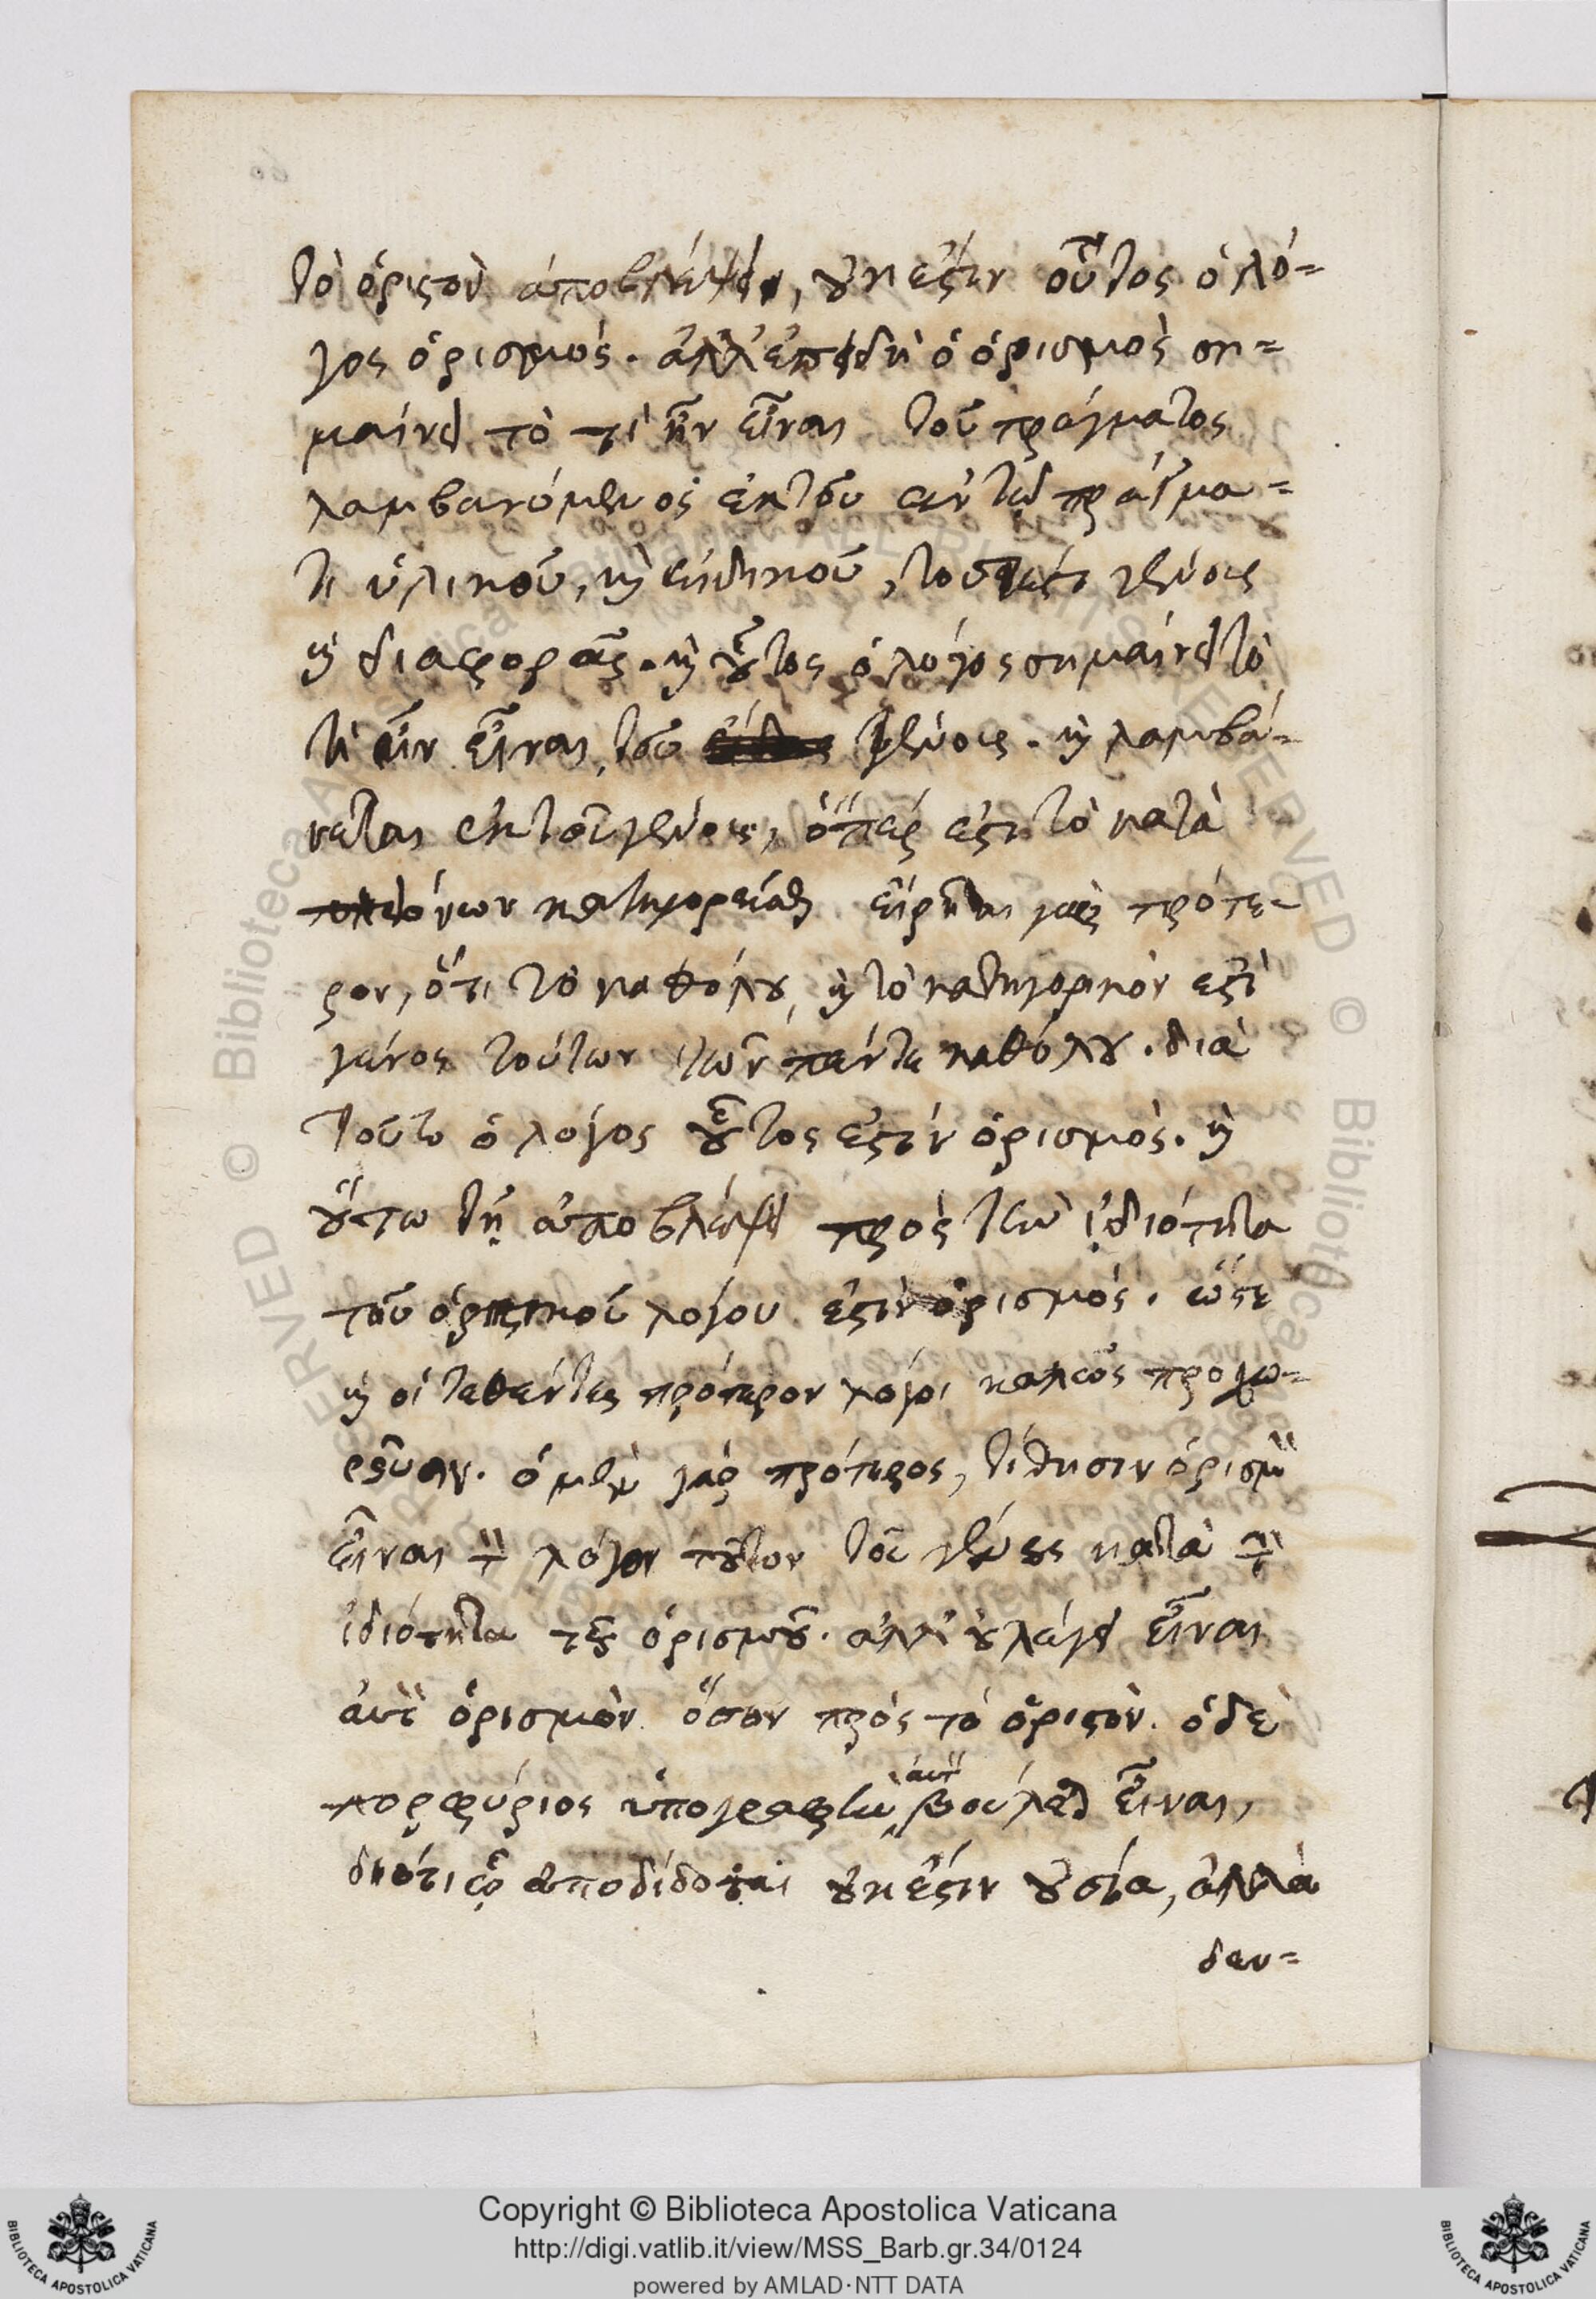 τὸ ὁριστὸν ἀποβλέψει, οὐκ ἔστιν οὗτος ὁ λό=
γος ὁρισμός. ἀλλ' ἐπειδὴ ὁ ὁρισμὸς ση=
μαίνει τὸ τὶ ἦν εἶναι τοῦ πράγματος
λαμβανόμενος ἐκ τοῦ ἐν τῷ πράγμα=
τι ὑλικοῦ, καὶ εἰδικοῦ, τουτέστι γένους
καὶ διαφορᾶς. καὶ οὗτος ὁ λόγος σημαίνει τὸ
τὶ ἦν εἶναι τοῦ γένους. καὶ λαμβά=
νεται ἐκ τοῦ γένους, ὅπερ ἐστὶ τὸ κατὰ
πλειόνων κατηγορεῖσθαι εἴρηται γὰρ πρότε=
ρον, ὅτι τὸ καθόλου, καὶ τὸ κατηγορικὸν ἐστὶ
γένος τούτων τῶν πέντε καθόλου. διὰ
τοῦτο ὁ λόγος οὗτος ἐστὶν ὁρισμὸς. καὶ
οὕτω τῇ ἀποβλέψει πρὸς τὴν ἰδιότητα
τοῦ ὁριστικοῦ λόγου ἐστὶν ὁρισμός. ὥστε
καὶ οἱ τεθέντες πρότερον λόγοι καλῶς προχω=
ροῦσιν. ὁ μὲν γὰρ πρότερος, τίθησιν ὁρισμὸν
εἶναι τὸν λόγον τοῦτον τοῦ γένους κατὰ τὴν
ἰδιότητα τοῦ ὁρισμοῦ. ἀλλ' οὐ λέγει εἶναι
αὐτὸν ὁρισμὸν ὅσον πρὸς τὸ ὁριστὸν. ὁ δὲ
πορφύριος ὑπογραφὴν αὐτὸν βούλεται εἶναι,
διότι ᾧ ἀποδίδοται οὐκ ἔστιν οὐσία, ἀλλὰ
δευ=
Copyright © Biblioteca Apostolica Vaticana
http://digi.vatlib.it/view/MSS_Barb.gr.34/0124
powered by AMLAD·NTT DATA